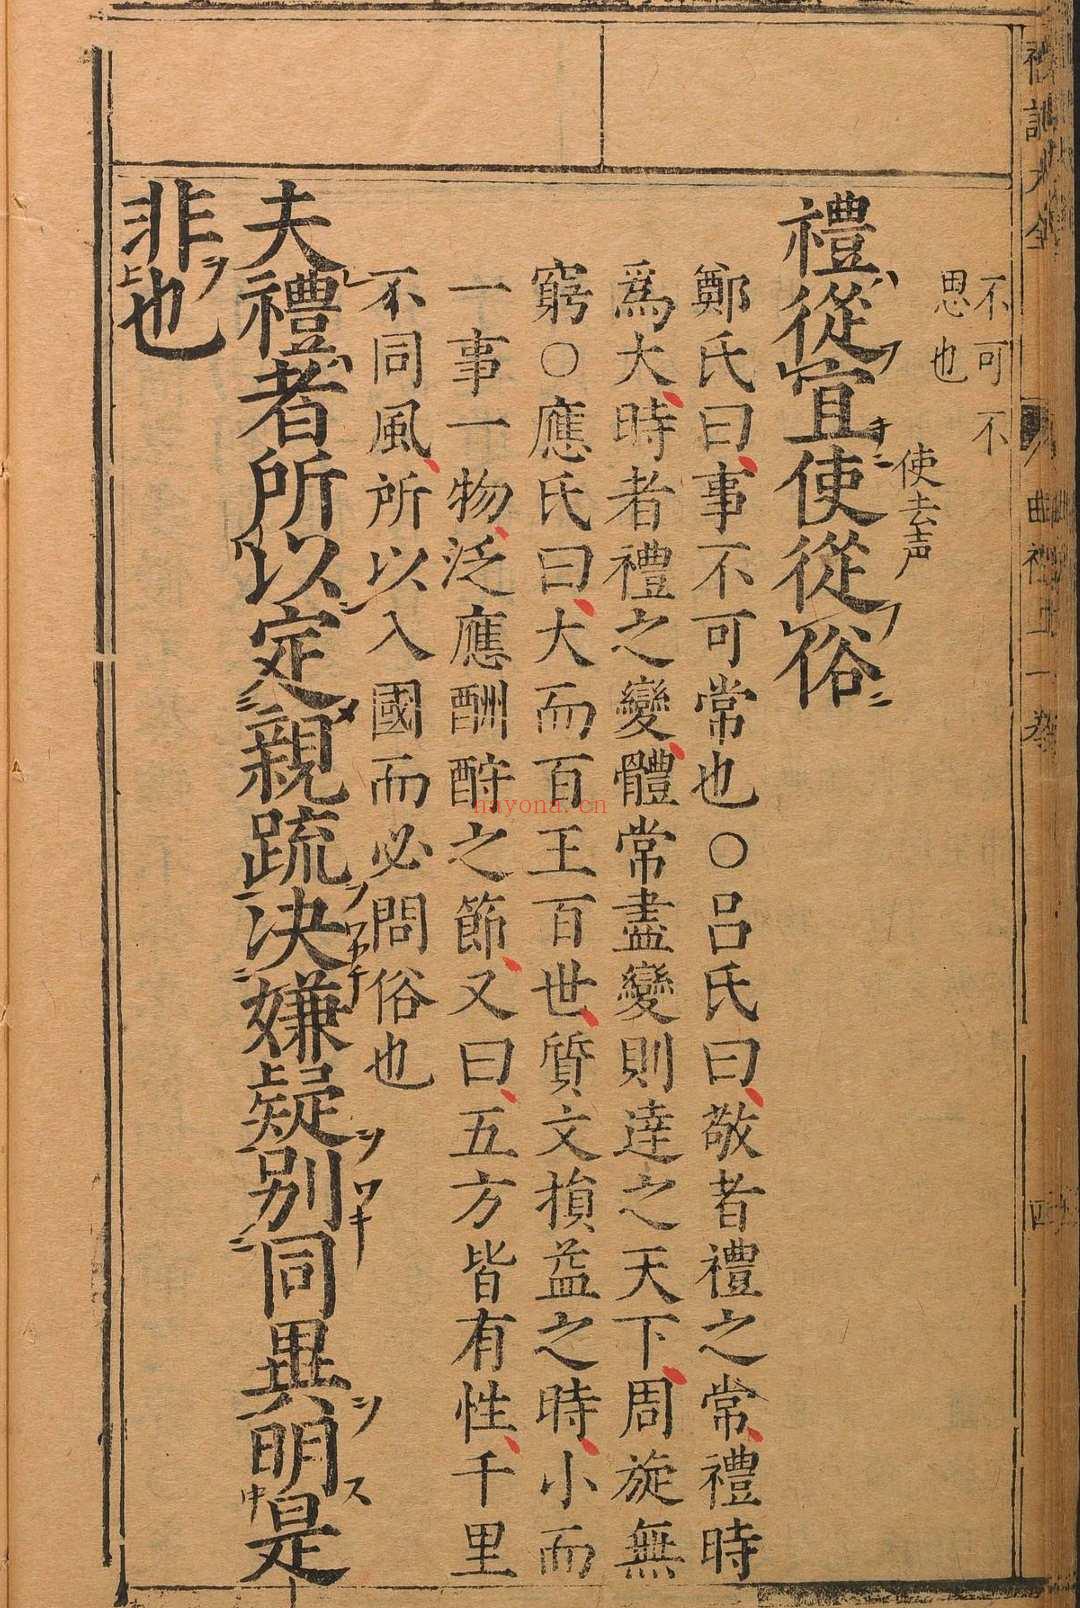 不可不
思也
禮從宜使從俗
使去声
鄭氏曰事不可常也○呂氏曰敬者禮之常禮時
爲大時者禮之變體常盡變則達之天下周旋無
窮○應氏曰大而百王百世質文損益之時小而
一事一物泛應酬酢之節又曰五方皆有性千里
不同風所以入國而必問俗也
夫禮者所以定親疏決嫌疑別同異明是
非也
nayona.cn